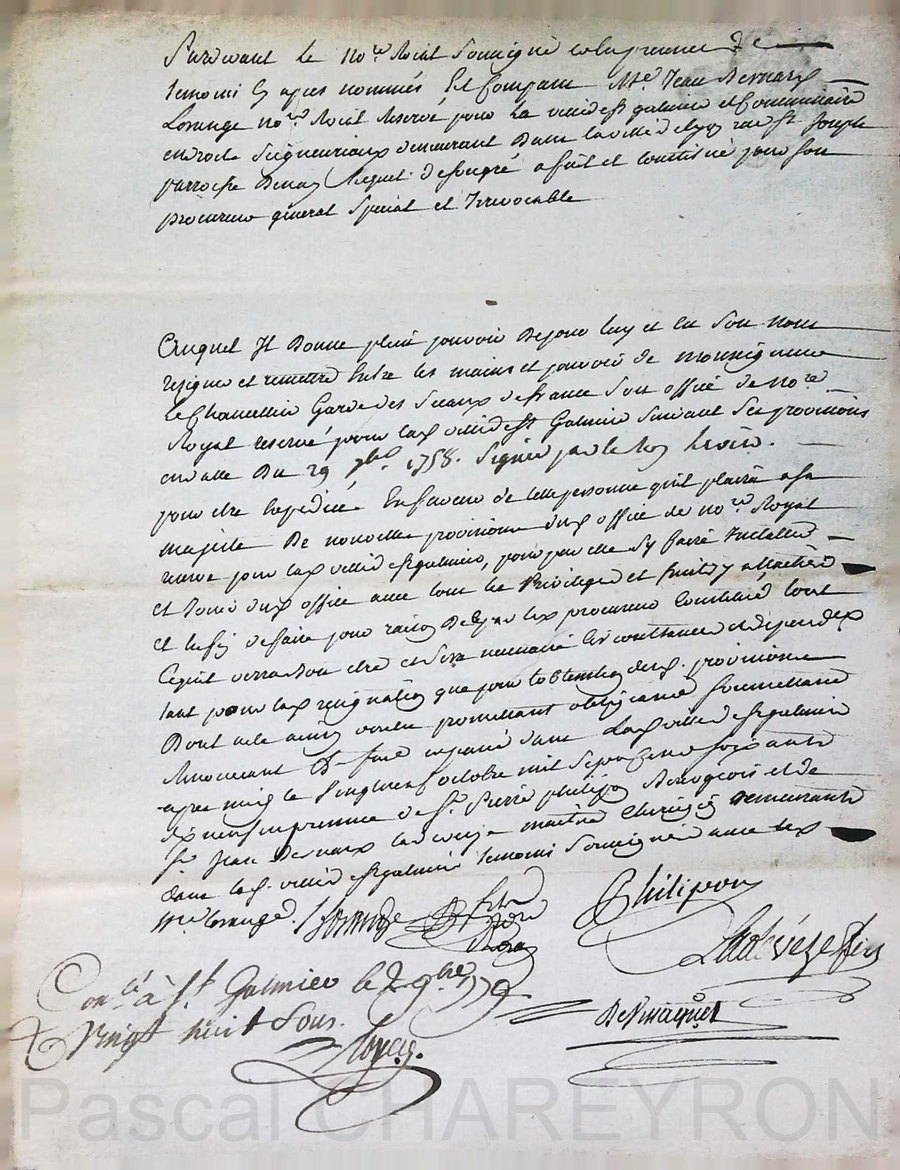 Pardevant le no.re Roial Soussigné et en presence de
temoins cy apres nommés Est Comparu M.e Jean Bernard
Lorange no.re Roial Reservé pour la ville de S.t galmier et Commissaire
en droits Seigneuriaux demeurant dans la ville de lyon rue S.t Joseph
parroisse D'enay lequel de son gré a fait et constitué pour son
procureur general Special et Irrevocable
Auquel Il Donne plein pouvoir De pour luy et en Son nom
resigner et remettre Entre les mains et pouvoir de monseigneur
le Chancellier Garde des Sceaux de france Son office de no.re
Royal reservé pour lad. ville de S.t Galmier Suivant Ses provisions
en datte Du 29 1758. Signées par le Roy
pour être Expedié En faveur de telle personne qu'il plaira a sa
majesté De nouvelles provisions dud. office de no.re Royal
reservé pour lad. ville de S.t galmier, pour par elle s'y faire Installer
et Jouir dud. office avec tous les Privileges et fruits y attachés
et Enfin de faire pour raison De ce par led. procureur Constitué tout
Ce qu'il verra bon être et Sera necessaire Circonstances et dependces
tant pour lad. resignation que pour l'obtention desd. provisions
Dont acte ainsi voulu promettant obligeant Soumettant
Renoncant &c fait et passé dans Lad. ville de S.t galmier
apres midy le vingt neuf octobre mil Sept cens soixante
dix neuf en presence de S.r Pierre philipon Bourgeois et de
S.r Jean Bernard ladeveze maitre Chirurgien demeurants
dans lad. ville de S.t galmier temoins Soussignés avec led.
m.e Lorange. Lorange
Philipon
Ladevéze
Con.lé à S.t Galmier le 2 9bre 1779
Vingt huit Sous.
Pascal CHAREYRON